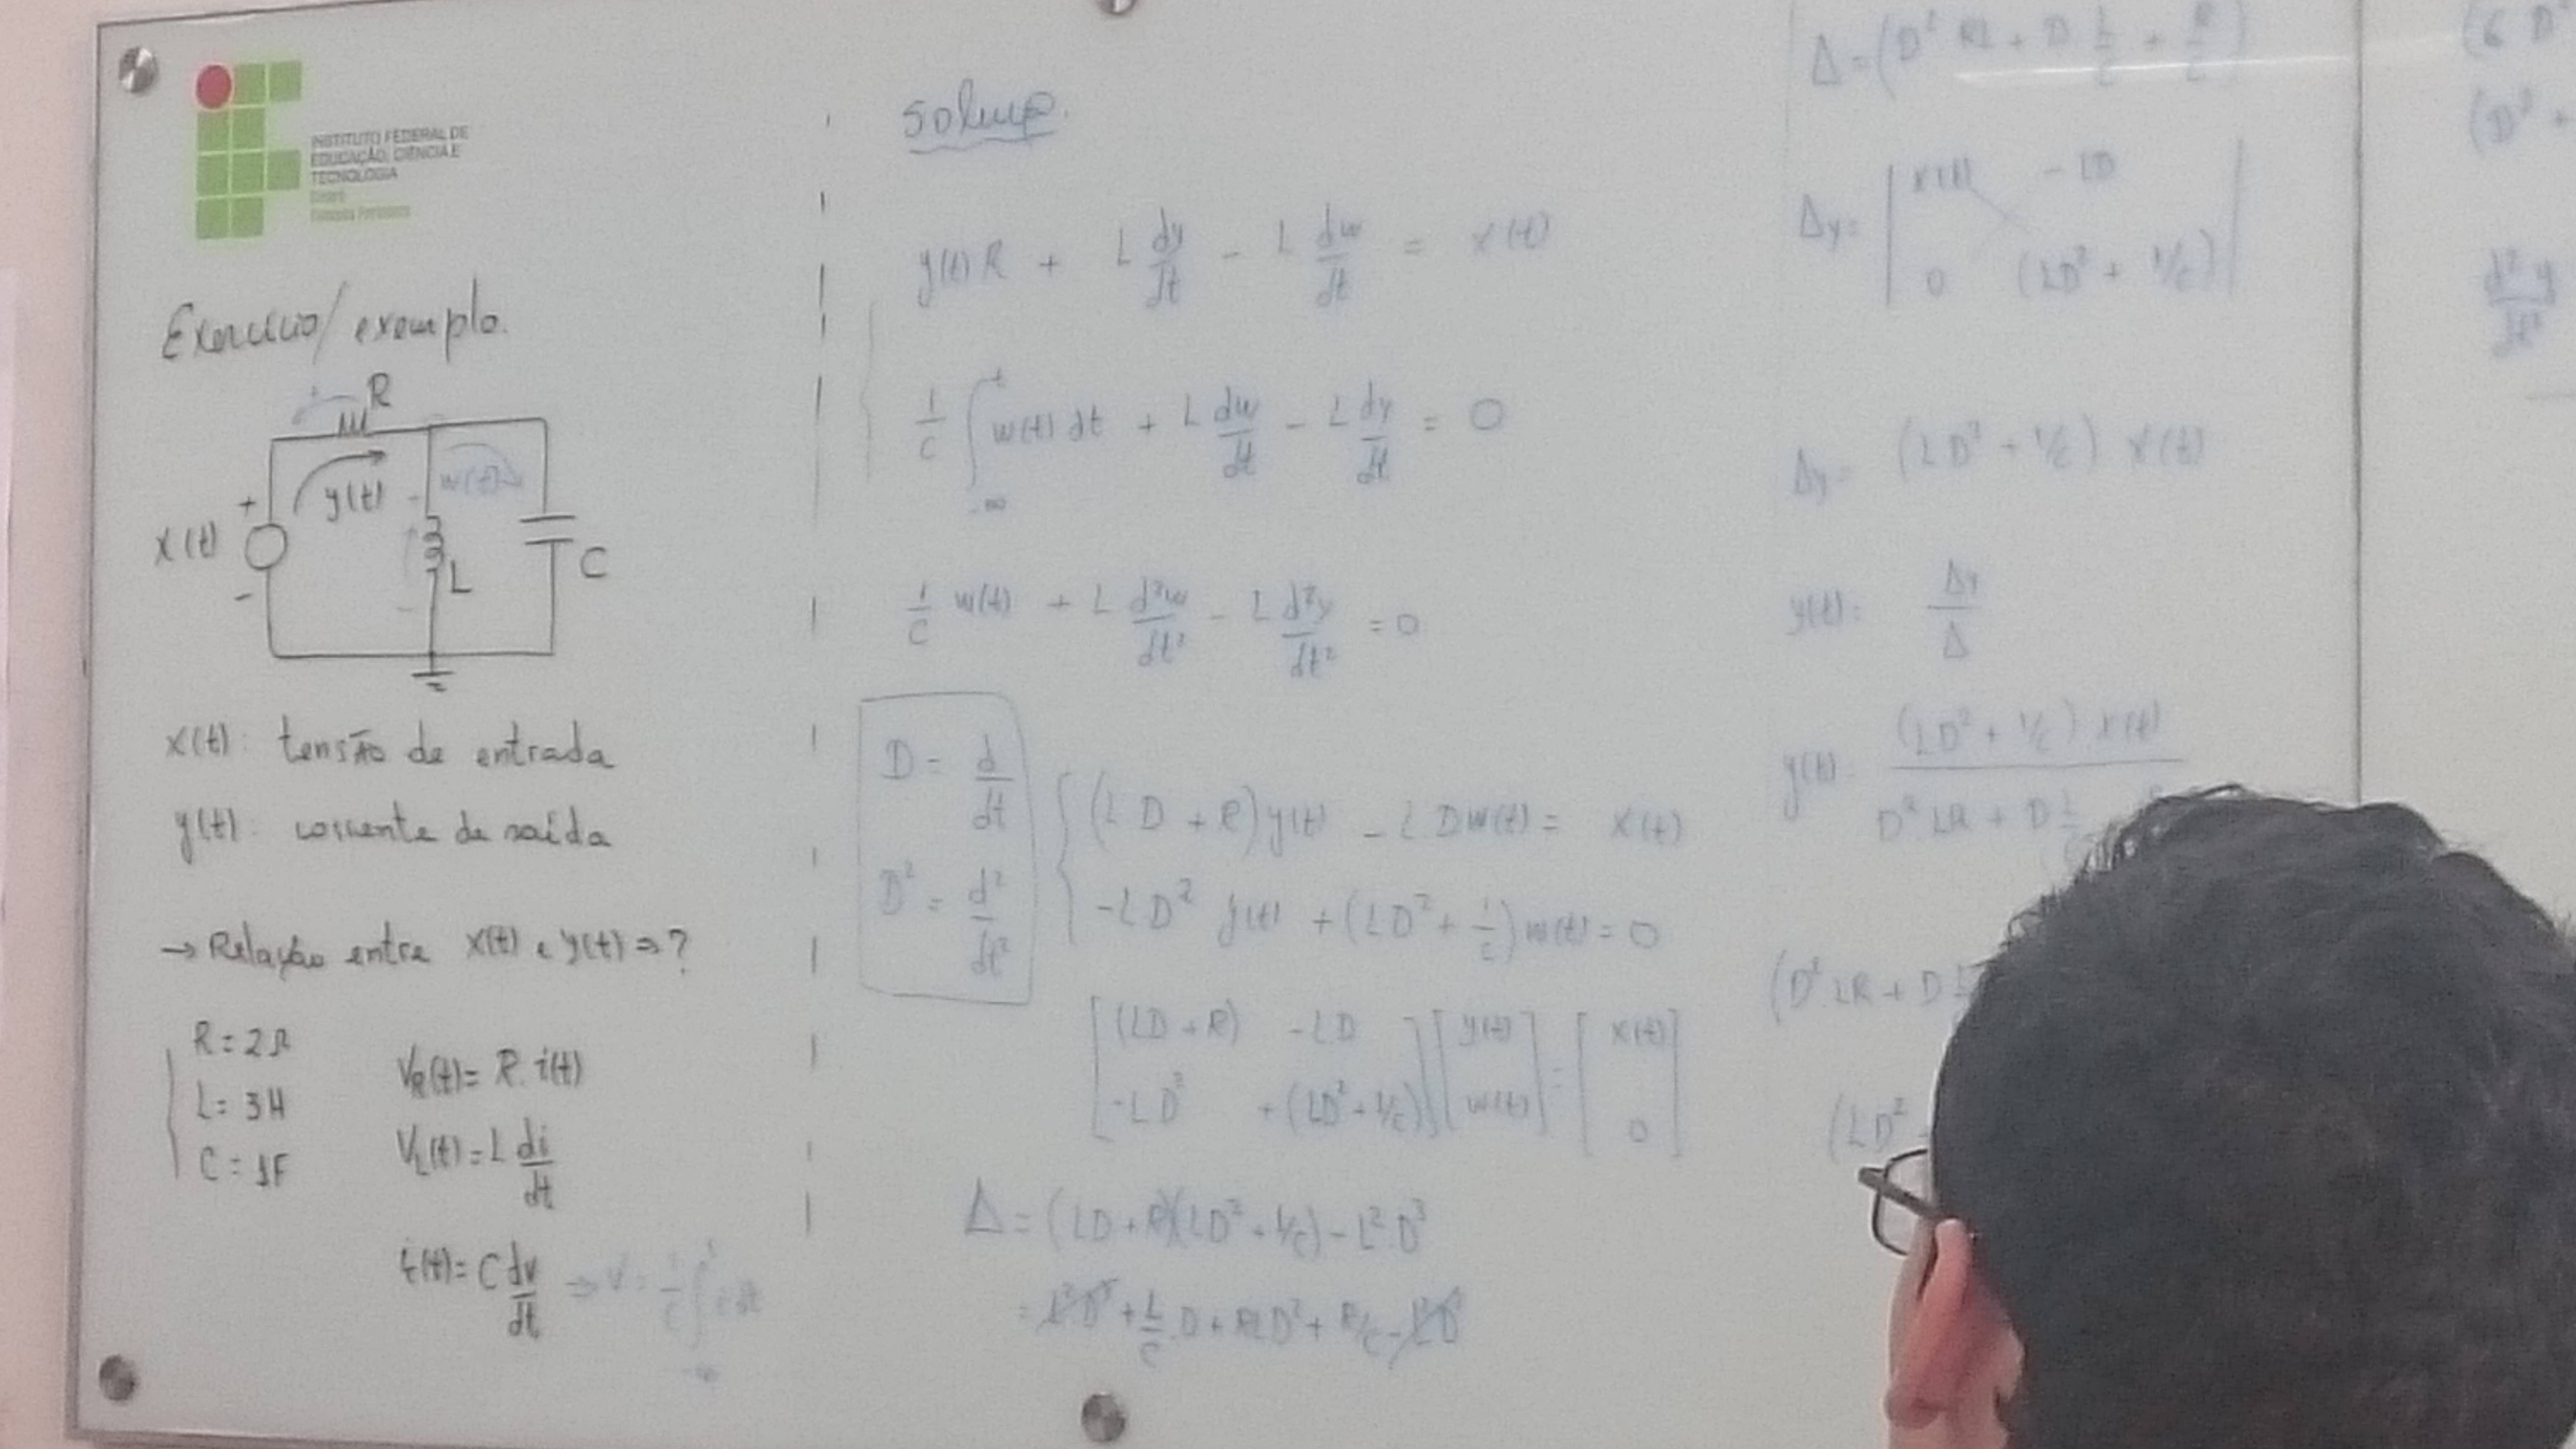 INSTITUTO FEDERAL DE
EDUCAÇÃO, CIÊNCIA E
TECNOLOGIA
Ceará
Exercício/exemplo.
R
y(t)
w(t)
+
x(t)
-
L
C
x(t): tensão de entrada
y(t): corrente de saída
→ Relação entre x(t) e y(t) ⇒ ?
R = 2Ω
L = 3H
C = 1F
V_R(t) = R. i(t)
V_L(t) = L di/dt
i(t) = C dv/dt ⇒ V = 1/C ∫_{-∞}^{t} i dt
Solução.
y(t) R + L dy/dt - L dw/dt = x(t)
1/C ∫_{-∞}^{t} w(t) dt + L dw/dt - L dy/dt = 0
1/C w(t) + L d²w/dt² - L d²y/dt² = 0
D = d/dt
D² = d²/dt²
(LD + R) y(t) - LD w(t) = x(t)
-LD² y(t) + (LD² + 1/C) w(t) = 0
[(LD + R) -LD] [y(t)] = [x(t)]
[-LD² +(LD² + 1/C)] [w(t)] [0]
Δ = (LD + R)(LD² + 1/C) - L² D³
= L²D³ + L/C . D + RLD² + R/C - L²D³
Δ = (D² RL + D L/C + R/C)
Δy = | x(t) -LD |
| 0 (LD² + 1/C) |
Δy = (LD² + 1/C) x(t)
y(t) = Δy/Δ
y(t) = (LD² + 1/C) x(t) / D² LR + D L/C
(D² LR + D L
(LD²
(6 D²
(D² +
d²y/dt²